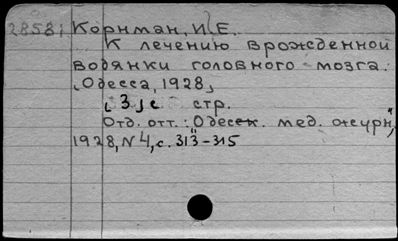 28581 Корнман, И. Е.
К лечению врожденной
водянки головного мозга.
[Одесса, 1928]
[3] с стр.
Отд. отт.: "Одесск. мед. журн.",
1928, N4, с. 313-315